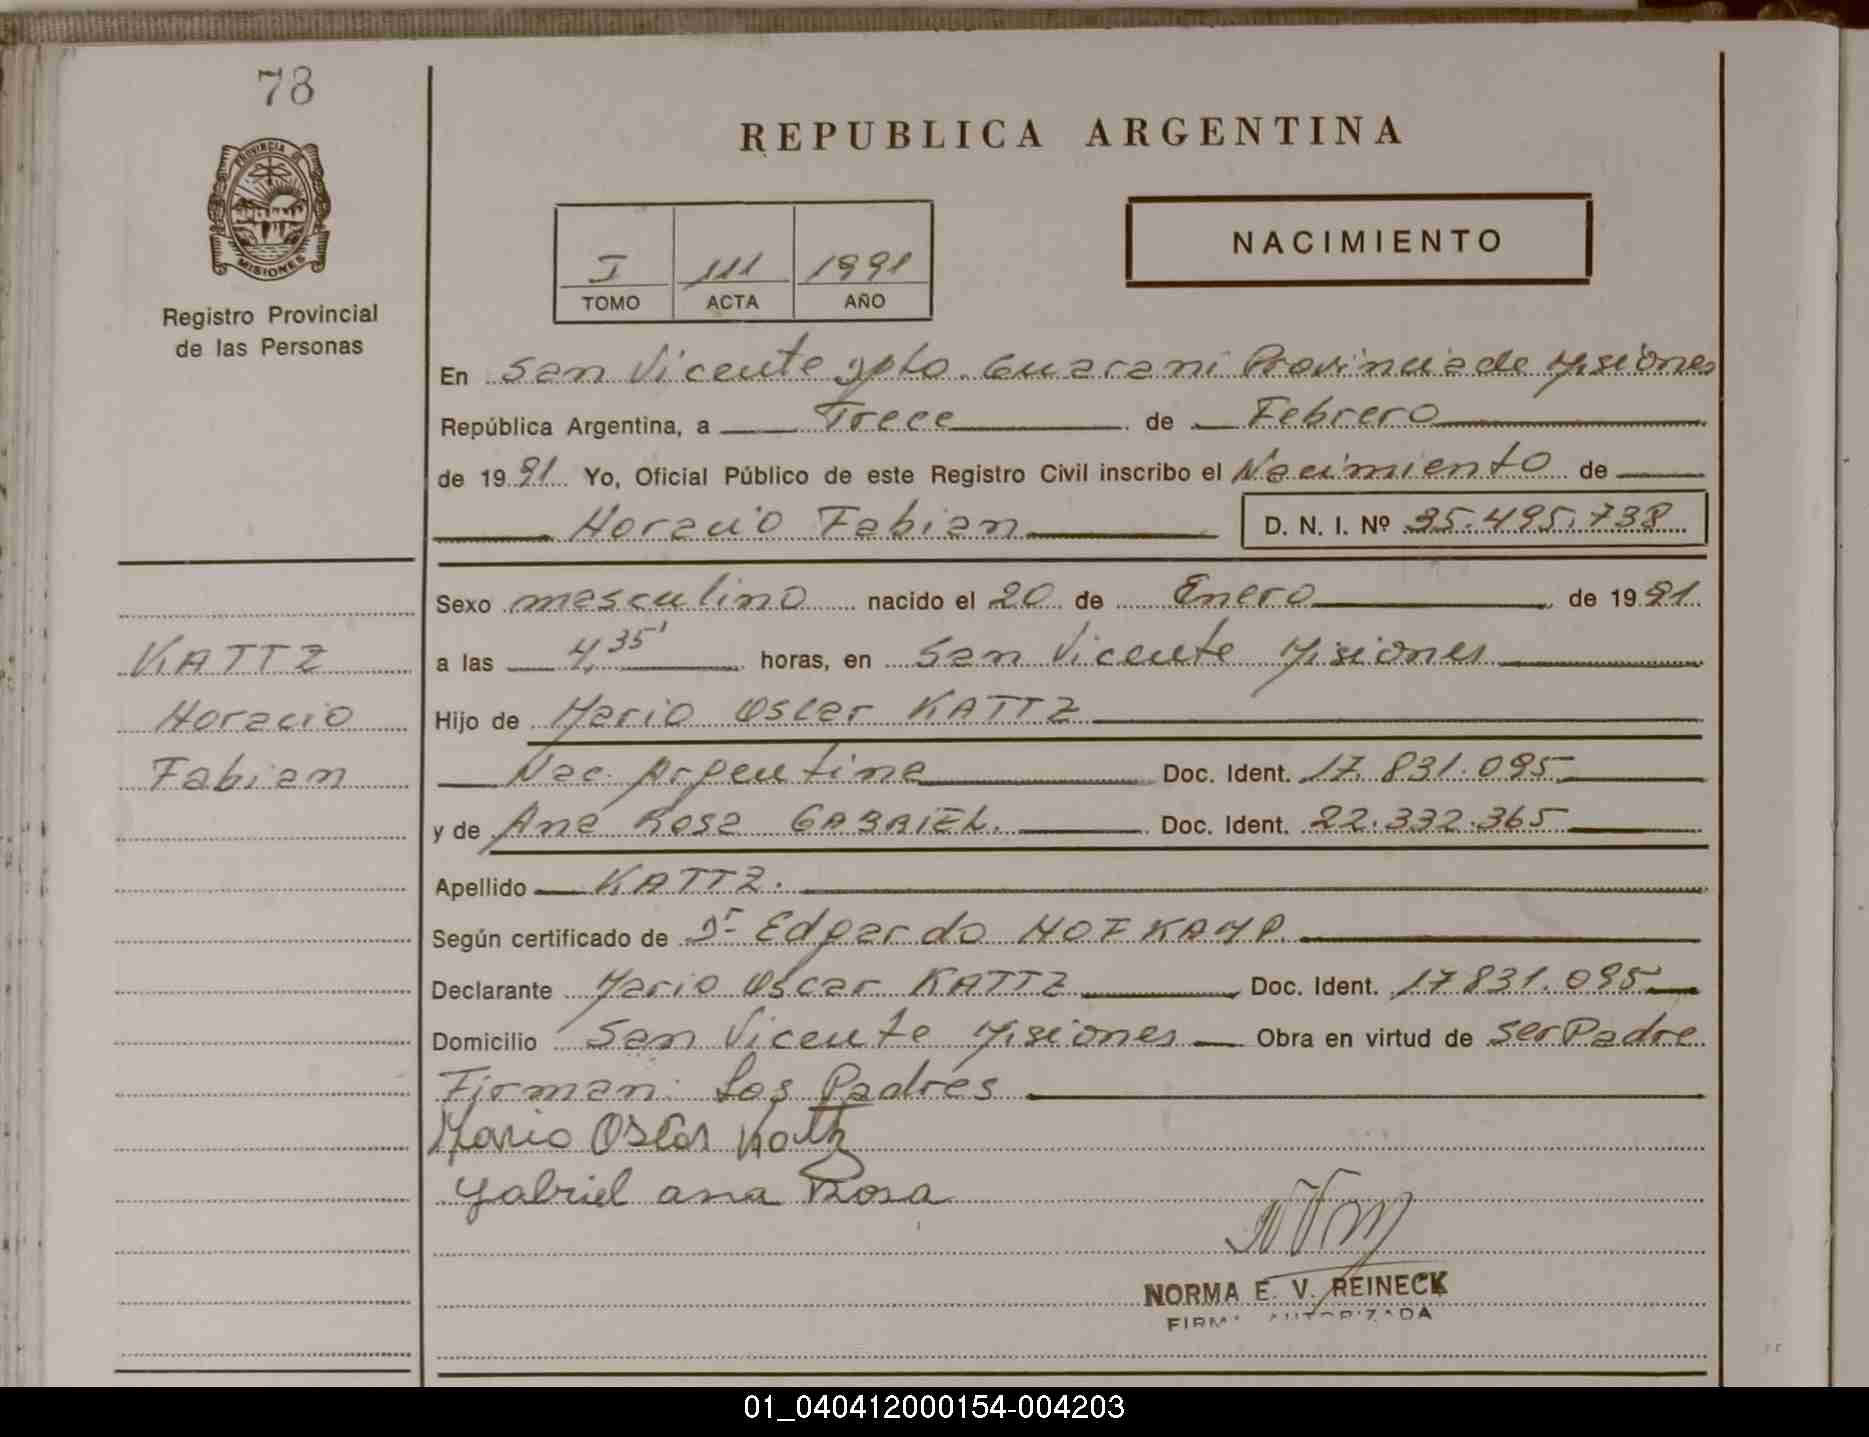 78
PROVINCIA DE
MISIONES
Registro Provincial
de las Personas
REPUBLICA ARGENTINA
I 111 1991
TOMO ACTA AÑO
NACIMIENTO
En San Vicente Dpto. Guarani Provincia de Misiones
República Argentina, a Trece de Febrero
de 1991 Yo, Oficial Público de este Registro Civil inscribo el Nacimiento de
Horacio Fabian D. N. I. Nº 35.495.738
Sexo masculino nacido el 20 de Enero de 1991
KATTZ
Horacio
Fabian
a las 4,35' horas, en San Vicente Misiones
Hijo de Mario Oscar KATTZ
Nac. Argentina Doc. Ident. 17.831.095
y de Ana Rosa GABRIEL. Doc. Ident. 22.332.365
Apellido KATTZ.
Según certificado de Dr Edgardo HOFKAMP.
Declarante Mario Oscar KATTZ Doc. Ident. 17831.095
Domicilio San Vicente Misiones Obra en virtud de ser Padre
Firman: Los Padres
Mario Oscar Kattz
Gabriel ana Rosa
NORMA E. V. REINECK
FIRMA AUTORIZADA
01_040412000154-004203